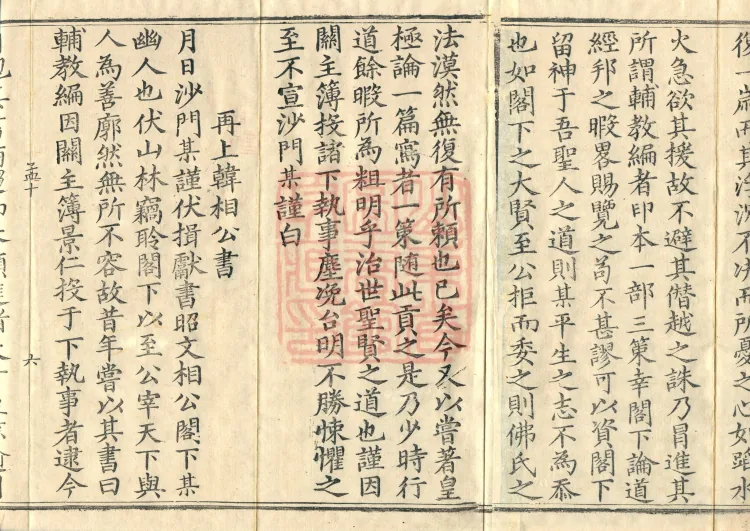 復一歲而其
不
所憂之心如蹈水
火急欲其援故不避其僭越之誅乃冒進其
所謂輔教編者印本一部三策幸閣下論道
經邦之暇畧賜覽之苟不甚謬可以資閣下
留神于吾聖人之道則某平生之志不為忝
也如閣下之大賢至公拒而委之則佛氏之
法漠然無復有所賴也已矣今又以嘗著皇
極論一篇寫者一策随此貢之是乃少時行
道餘暇所為粗明乎治世聖賢之道也謹因
關主簿投諸下執事塵浼台明不勝悚懼之
至不宣沙門某謹白
再上韓相公書
月日沙門某謹伏揖獻書昭文相公閣下某
幽人也伏山林竊聆閣下以至公宰天下與
人為善廓然無所不容故昔年嘗以其書曰
輔教編因關主簿景仁投于下執事者逮今
孟十
六